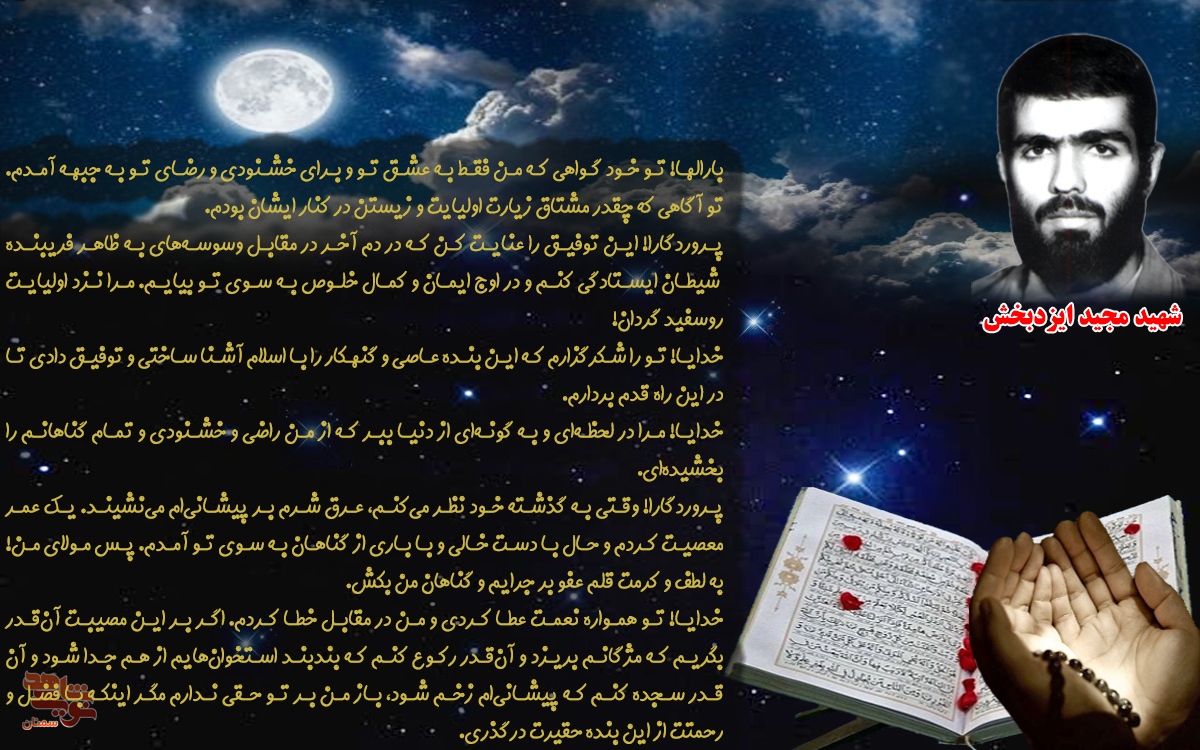 بارالها! تو خود گواهی که من فقط به عشق تو و برای خشنودی و رضای تو به جبهه آمدم.
تو آگاهی که چقدر مشتاق زیارت اولیایت و زیستن در کنار ایشان بودم.
پروردگارا! این توفیق را عنایت کن که در دم آخر در مقابل وسوسه‌های به ظاهر فریبنده
شیطان ایستادگی کنم و در اوج ایمان و کمال خلوص به سوی تو بیایم. مرا نزد اولیایت
روسفید گردان!
خدایا! تو را شکرگزارم که این بنده عاصی و گنهکار را با اسلام آشنا ساختی و توفیق دادی تا
در این راه قدم بردارم.
خدایا! مرا در لحظه‌ای و به گونه‌ای از دنیا ببر که از من راضی و خشنودی و تمام گناهانم را
بخشیده‌ای.
پروردگارا! وقتی به گذشته خود نظر می‌کنم، عرق شرم بر پیشانی‌ام می‌نشیند. یک عمر
معصیت کردم و حال با دست خالی و با باری از گناهان به سوی تو آمدم. پس مولای من!
به لطف و کرمت قلم عفو بر جرایم و گناهان من بکش.
خدایا! تو همواره نعمت عطا کردی و من در مقابل خطا کردم. اگر بر این مصیبت آن‌قدر
بگریم که مژگانم بریزد و آن‌قدر رکوع کنم که بندبند استخوان‌هایم از هم جدا شود و آن
قدر سجده کنم که پیشانی‌ام زخم شود، باز من بر تو حقی ندارم مگر اینکه با فضل و
رحمتت از این بنده حقیرت درگذری.
شهید مجید ایزدبخش
نوید شاهد
سمنان